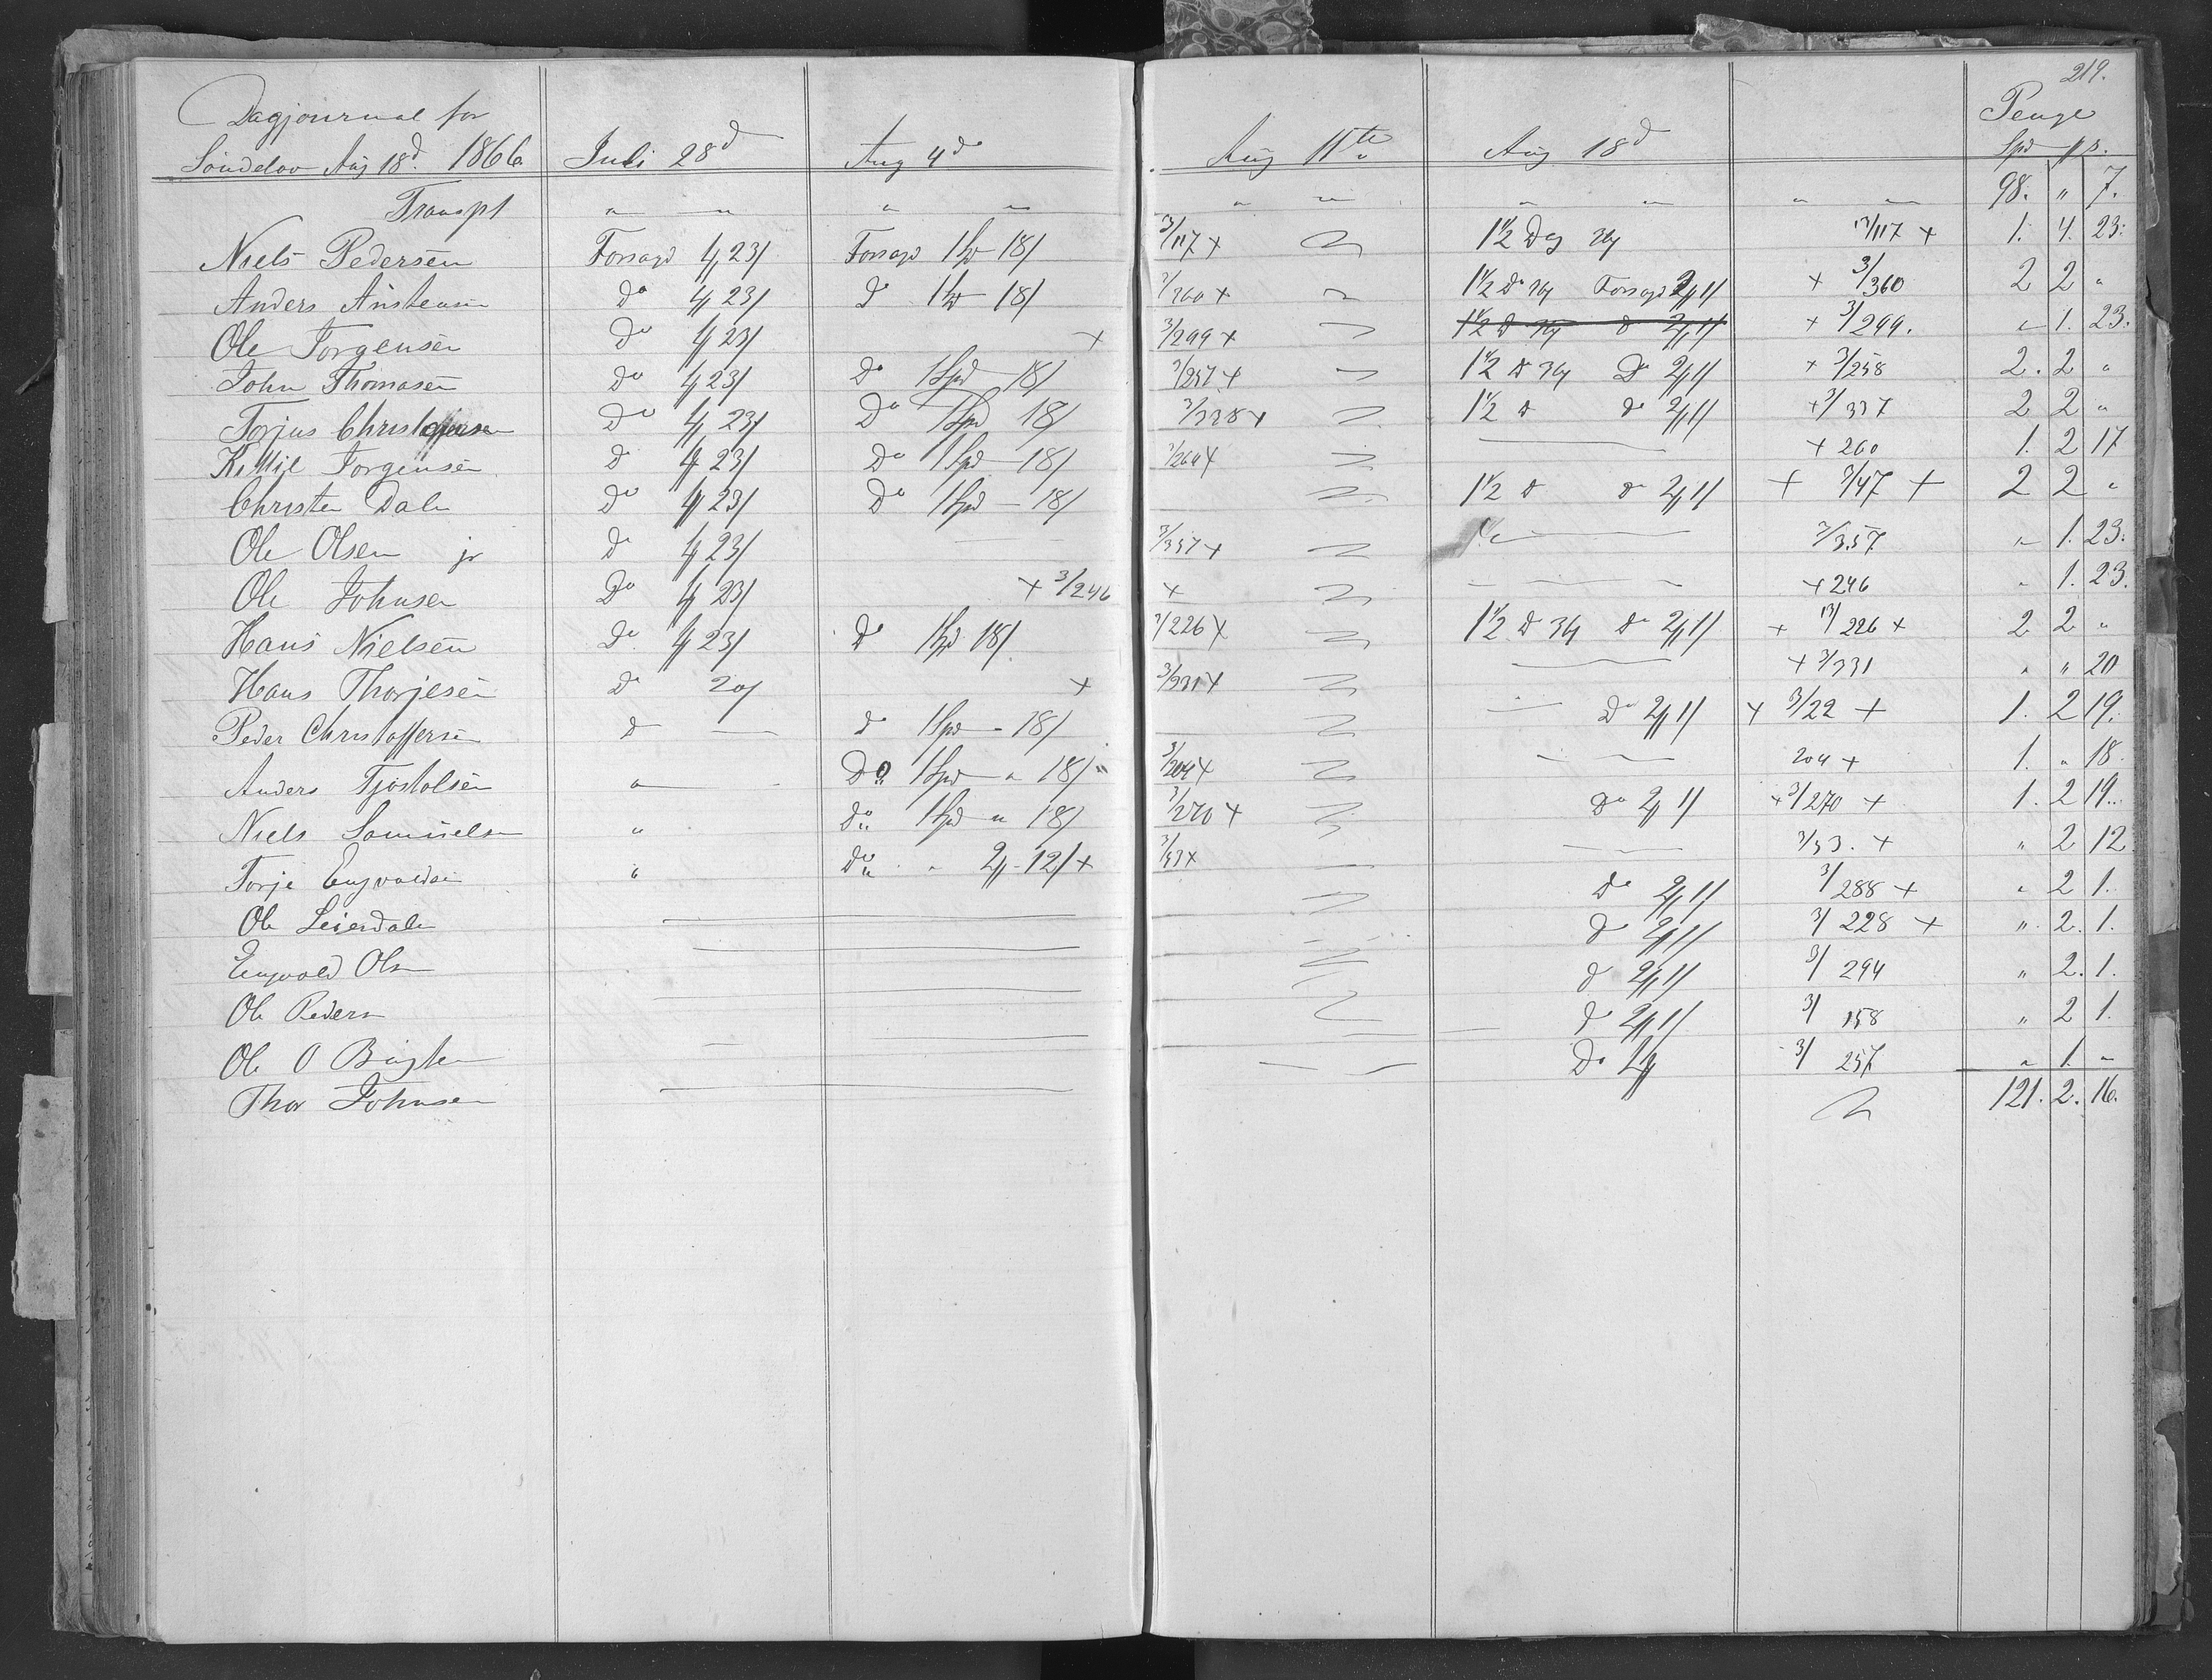 219.
Dagjournal for Penge
Söndelov Aug 18d. 1866 Juli 28d Aug 4de Aug 11te Aug 18d Spd β s.
Transpt " " " " " " " " " " 98. " 7.
Niels Pedersen Forsagd 4 23/ Forsagd 1 Spd - 18/ 3/117 + 1 1/2 Dag 3/4 13/117 + 1. 4. 23.
Anders Anstensen Do 4 23/ Do 1 Spd - 18/ 3/360 + 1 1/2 Do 3/4 Forsagd 2/ 1/ + 3/360 2 2 "
Ole Torgensen Do 4 23/ + 3/299 + 1 1/2 D 3/4 D 2/ 1/ + 3/299. " 1. 23.
John Thomasen Do 4 23/ Do 1 Spd 18/ 3/257 + 1 1/2 D 3/4 Do 2/ 1/ + 3/258 2. 2 "
Torjus Christoffersen Do 4 23/ Do 1 Spd 18/ 3/338 + 1 1/2 D Do 2/ 1/ + 3/337 2 2 "
Kittil Torgensen D 4 23/ Do 1 Spd - 18/ 3/260 + + 260 1. 2 17
Christen Dale Do 4 23/ Do 1 Spd - 18/ 1 1/2 D Do 2/ 1/ + 3/47 + 2 2 "
Ole Olsen jr D 4 23/ 3/357 + 3/357 " 1. 23.
Ole Johnsen Do 4 23/ + 3/246 + + 246 " 1. 23.
Hans Nielsen Do 4 23/ Do 1 Spd 18/ 3/226 + 1 1/2 D 3/4 Do 2/ 1/ + 13/226 + 2 2 "
Hans Thorjesen Do 20/ + 3/331 + + 3/331 " " 20
Peder Christoffersen D — Do 1 Spd - 18/ Do 2/ 1/ + 3/22 + 1. 2 19.
Anders Tjostolsen " Do 1 Spd " 18/ 3/204 + 204 + 1. " 18.
Niels Samuelsen " Do 1 Spd " 18/ 3/270 + Do 2/ 1/ + 3/270 + 1. 2 19.
Torje Engvoldsen " Do " 2/ - 12/ + 3/53 + 3/53. + " 2 12
Ole Leierdale Do 2/ 1/ 3/288 + " 2 1.
Engvold Olsen D 2/ 1/ 3/228 + " 2. 1.
Ole Pedersen D 2/ 1/ 3/294 " 2. 1.
Ole O Bigten D 2/ 1/ 3/158 " 2 1.
Thor Johnsen Do 1/ 3/257 " 1. "
121. 2. 16.